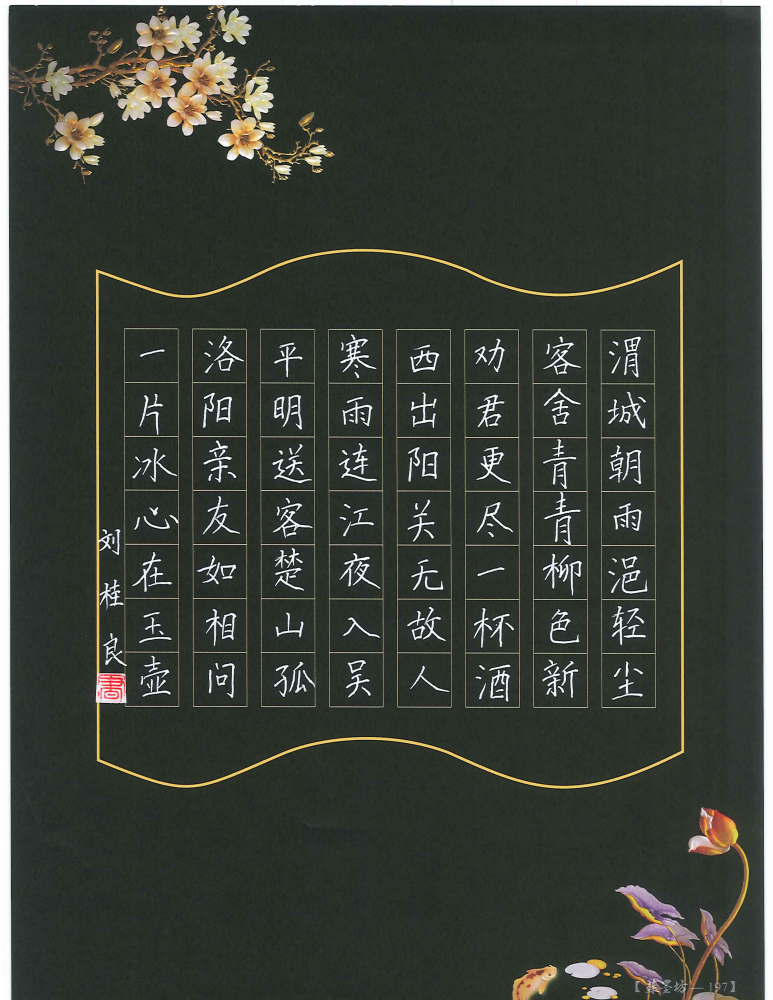 渭城朝雨浥轻尘
客舍青青柳色新
劝君更尽一杯酒
西出阳关无故人
寒雨连江夜入吴
平明送客楚山孤
洛阳亲友如相问
一片冰心在玉壶
刘桂良
197】